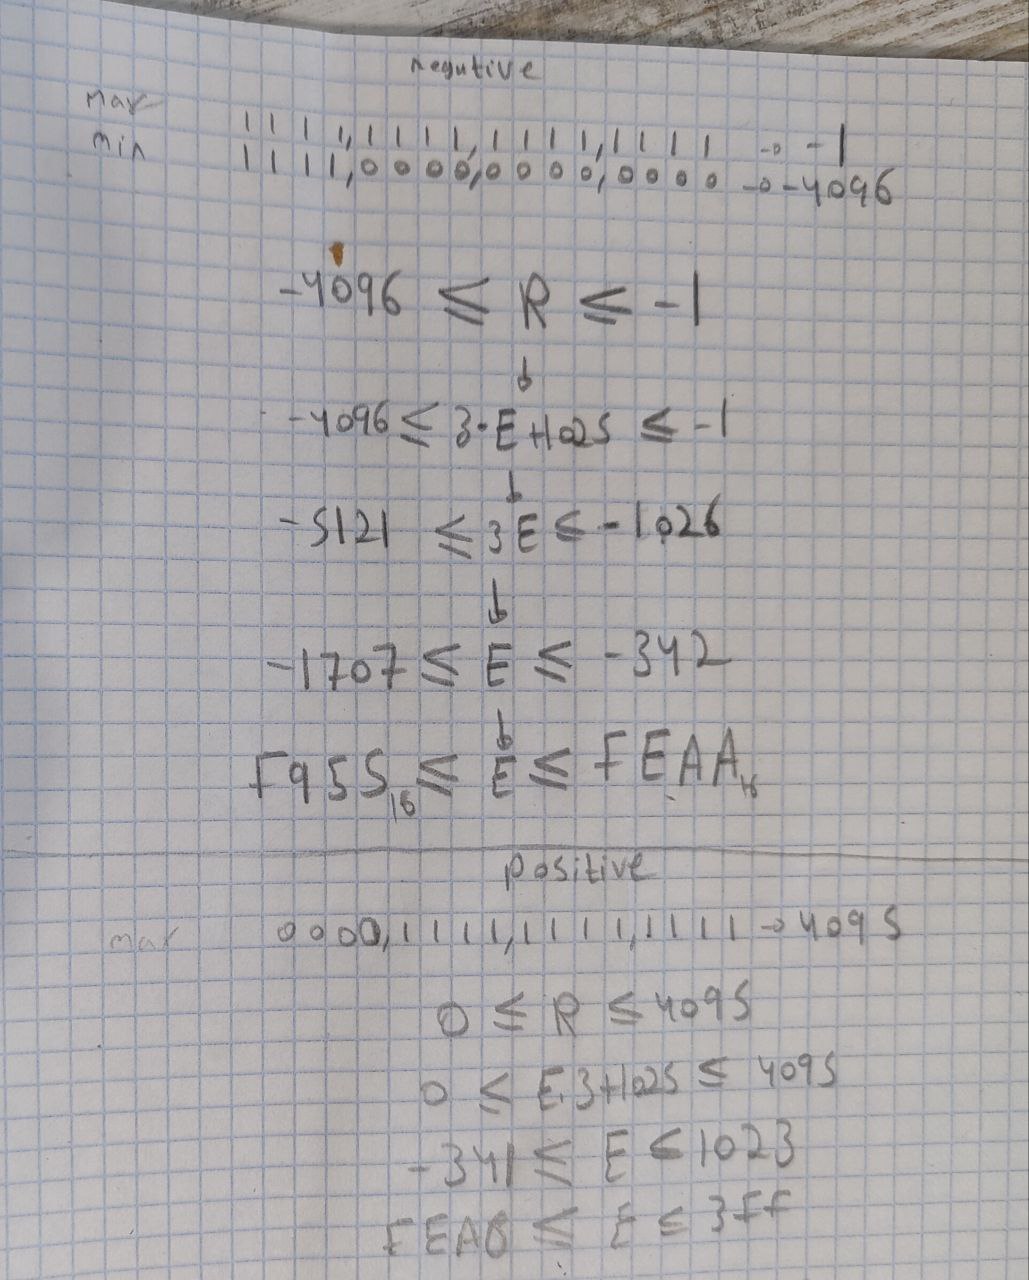 negative
max
1 1 1 1,1 1 1 1,1 1 1 1,1 1 1 1 → -1
min
1 1 1 1,0 0 0 0,0 0 0 0,0 0 0 0 → -4096
-4096 ≤ R ≤ -1
↓
-4096 ≤ 3·E+1025 ≤ -1
↓
-5121 ≤ 3E ≤ -1026
↓
-1707 ≤ E ≤ -342
↓
F955₁₆ ≤ E ≤ FEAA₁₆
positive
max 0 0 0 0,1 1 1 1,1 1 1 1,1 1 1 1 → 4095
0 ≤ R ≤ 4095
0 ≤ E·3+1025 ≤ 4095
-341 ≤ E ≤ 1023
≤ E ≤ 3FF